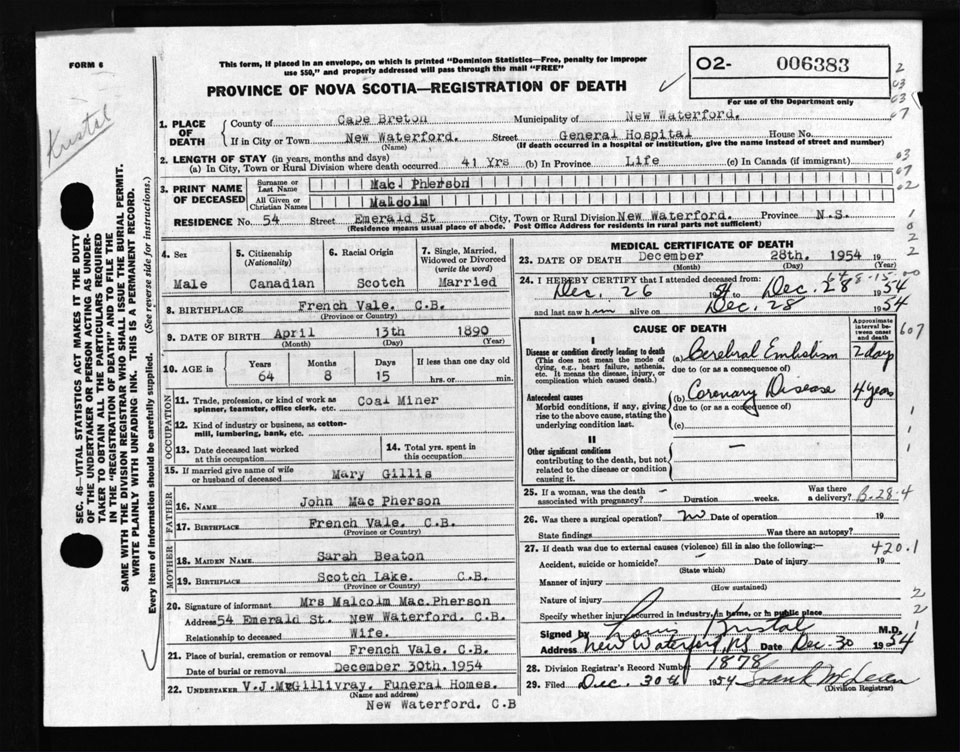 FORM 6
This form, if placed in an envelope, on which is printed "Dominion Statistics—Free, penalty for improper
use $50," and properly addressed will pass through the mail "FREE"
PROVINCE OF NOVA SCOTIA—REGISTRATION OF DEATH
O2- 006383
For use of the Department only
SEC. 45—VITAL STATISTICS ACT MAKES IT THE DUTY
OF THE UNDERTAKER OR PERSON ACTING AS UNDER-
TAKER TO OBTAIN ALL THE PARTICULARS REQUIRED
IN THE "REGISTRATION OF DEATH" AND TO FILE THE
SAME WITH THE DIVISION REGISTRAR WHO SHALL ISSUE THE BURIAL PERMIT.
WRITE PLAINLY WITH UNFADING INK. THIS IS A PERMANENT RECORD.
Every item of information should be carefully supplied. (See reverse side for instructions.)
1. PLACE OF DEATH County of Cape Breton Municipality of New Waterford.
If in City or Town New Waterford. Street General Hospital House No.
(Name) (If death occurred in a hospital or institution, give the name instead of street and number)
2. LENGTH OF STAY (in years, months and days)
(a) In City, Town or Rural Division where death occurred 41 Yrs (b) In Province Life (c) In Canada (if immigrant)
3. PRINT NAME OF DECEASED Surname or Last Name Mac. Pherson
All Given or Christian Names Malcolm
RESIDENCE No. 54 Street Emerald St City, Town or Rural Division New Waterford. Province N.S.
(Residence means usual place of abode. Post Office Address for residents in rural parts not sufficient)
4. Sex 5. Citizenship (Nationality) 6. Racial Origin 7. Single, Married, Widowed or Divorced (write the word)
Male Canadian Scotch Married
8. BIRTHPLACE French Vale, C.B.
(Province or Country)
9. DATE OF BIRTH April 13th 1890
(Month) (Day) (Year)
10. AGE in Years Months Days If less than one day old
64 8 15 hrs. or min.
OCCUPATION
11. Trade, profession, or kind of work as spinner, teamster, office clerk, etc. Coal Miner
12. Kind of industry or business, as cotton-mill, lumbering, bank, etc.
13. Date deceased last worked at this occupation 14. Total yrs. spent in this occupation
15. If married give name of wife or husband of deceased Mary Gillis
FATHER
16. NAME John Mac Pherson
17. BIRTHPLACE French Vale. C.B.
(Province or Country)
MOTHER
18. MAIDEN NAME Sarah Beaton
19. BIRTHPLACE Scotch Lake. C.B.
(Province or Country)
20. Signature of informant Mrs Malcolm Mac.Pherson
Address 54 Emerald St. New Waterford. C.B.
Relationship to deceased Wife.
21. Place of burial, cremation or removal French Vale. C.B.
Date of burial or removal December 30th. 1954
22. UNDERTAKER V.J.McGillivray. Funeral Homes.
(Name and address)
New Waterford. C.B
MEDICAL CERTIFICATE OF DEATH
23. DATE OF DEATH December 28th. 1954 19
(Month) (Day) (Year)
24. I HEREBY CERTIFY that I attended deceased from:
Dec. 26 1954 to Dec. 28 1954
and last saw him alive on Dec. 28 1954
CAUSE OF DEATH
Approximate interval between onset and death
I
Disease or condition directly leading to death
(This does not mean the mode of dying, e.g., heart failure, asthenia, etc. It means the disease, injury, or complication which caused death.)
(a) Cerebral Embolism 2 days
due to (or as a consequence of)
Antecedent causes
Morbid conditions, if any, giving rise to the above cause, stating the underlying condition last.
(b) Coronary Disease 4 years
due to (or as a consequence of)
(c)
II
Other significant conditions
contributing to the death, but not related to the disease or condition causing it.
25. If a woman, was the death associated with pregnancy? Duration weeks. Was there a delivery?
26. Was there a surgical operation? no Date of operation 19
State findings Was there an autopsy?
27. If death was due to external causes (violence) fill in also the following:—
420.1
Accident, suicide or homicide? Date of injury 19
(State which)
Manner of injury
(How sustained)
Nature of injury
Specify whether injury occurred in industry, in home, or in public place
Signed by Louis M.D.
Address New Waterford, NS Date Dec. 30 1954
28. Division Registrar's Record Number 1878
29. Filed Dec. 30th 1954 Frank
(Division Registrar)